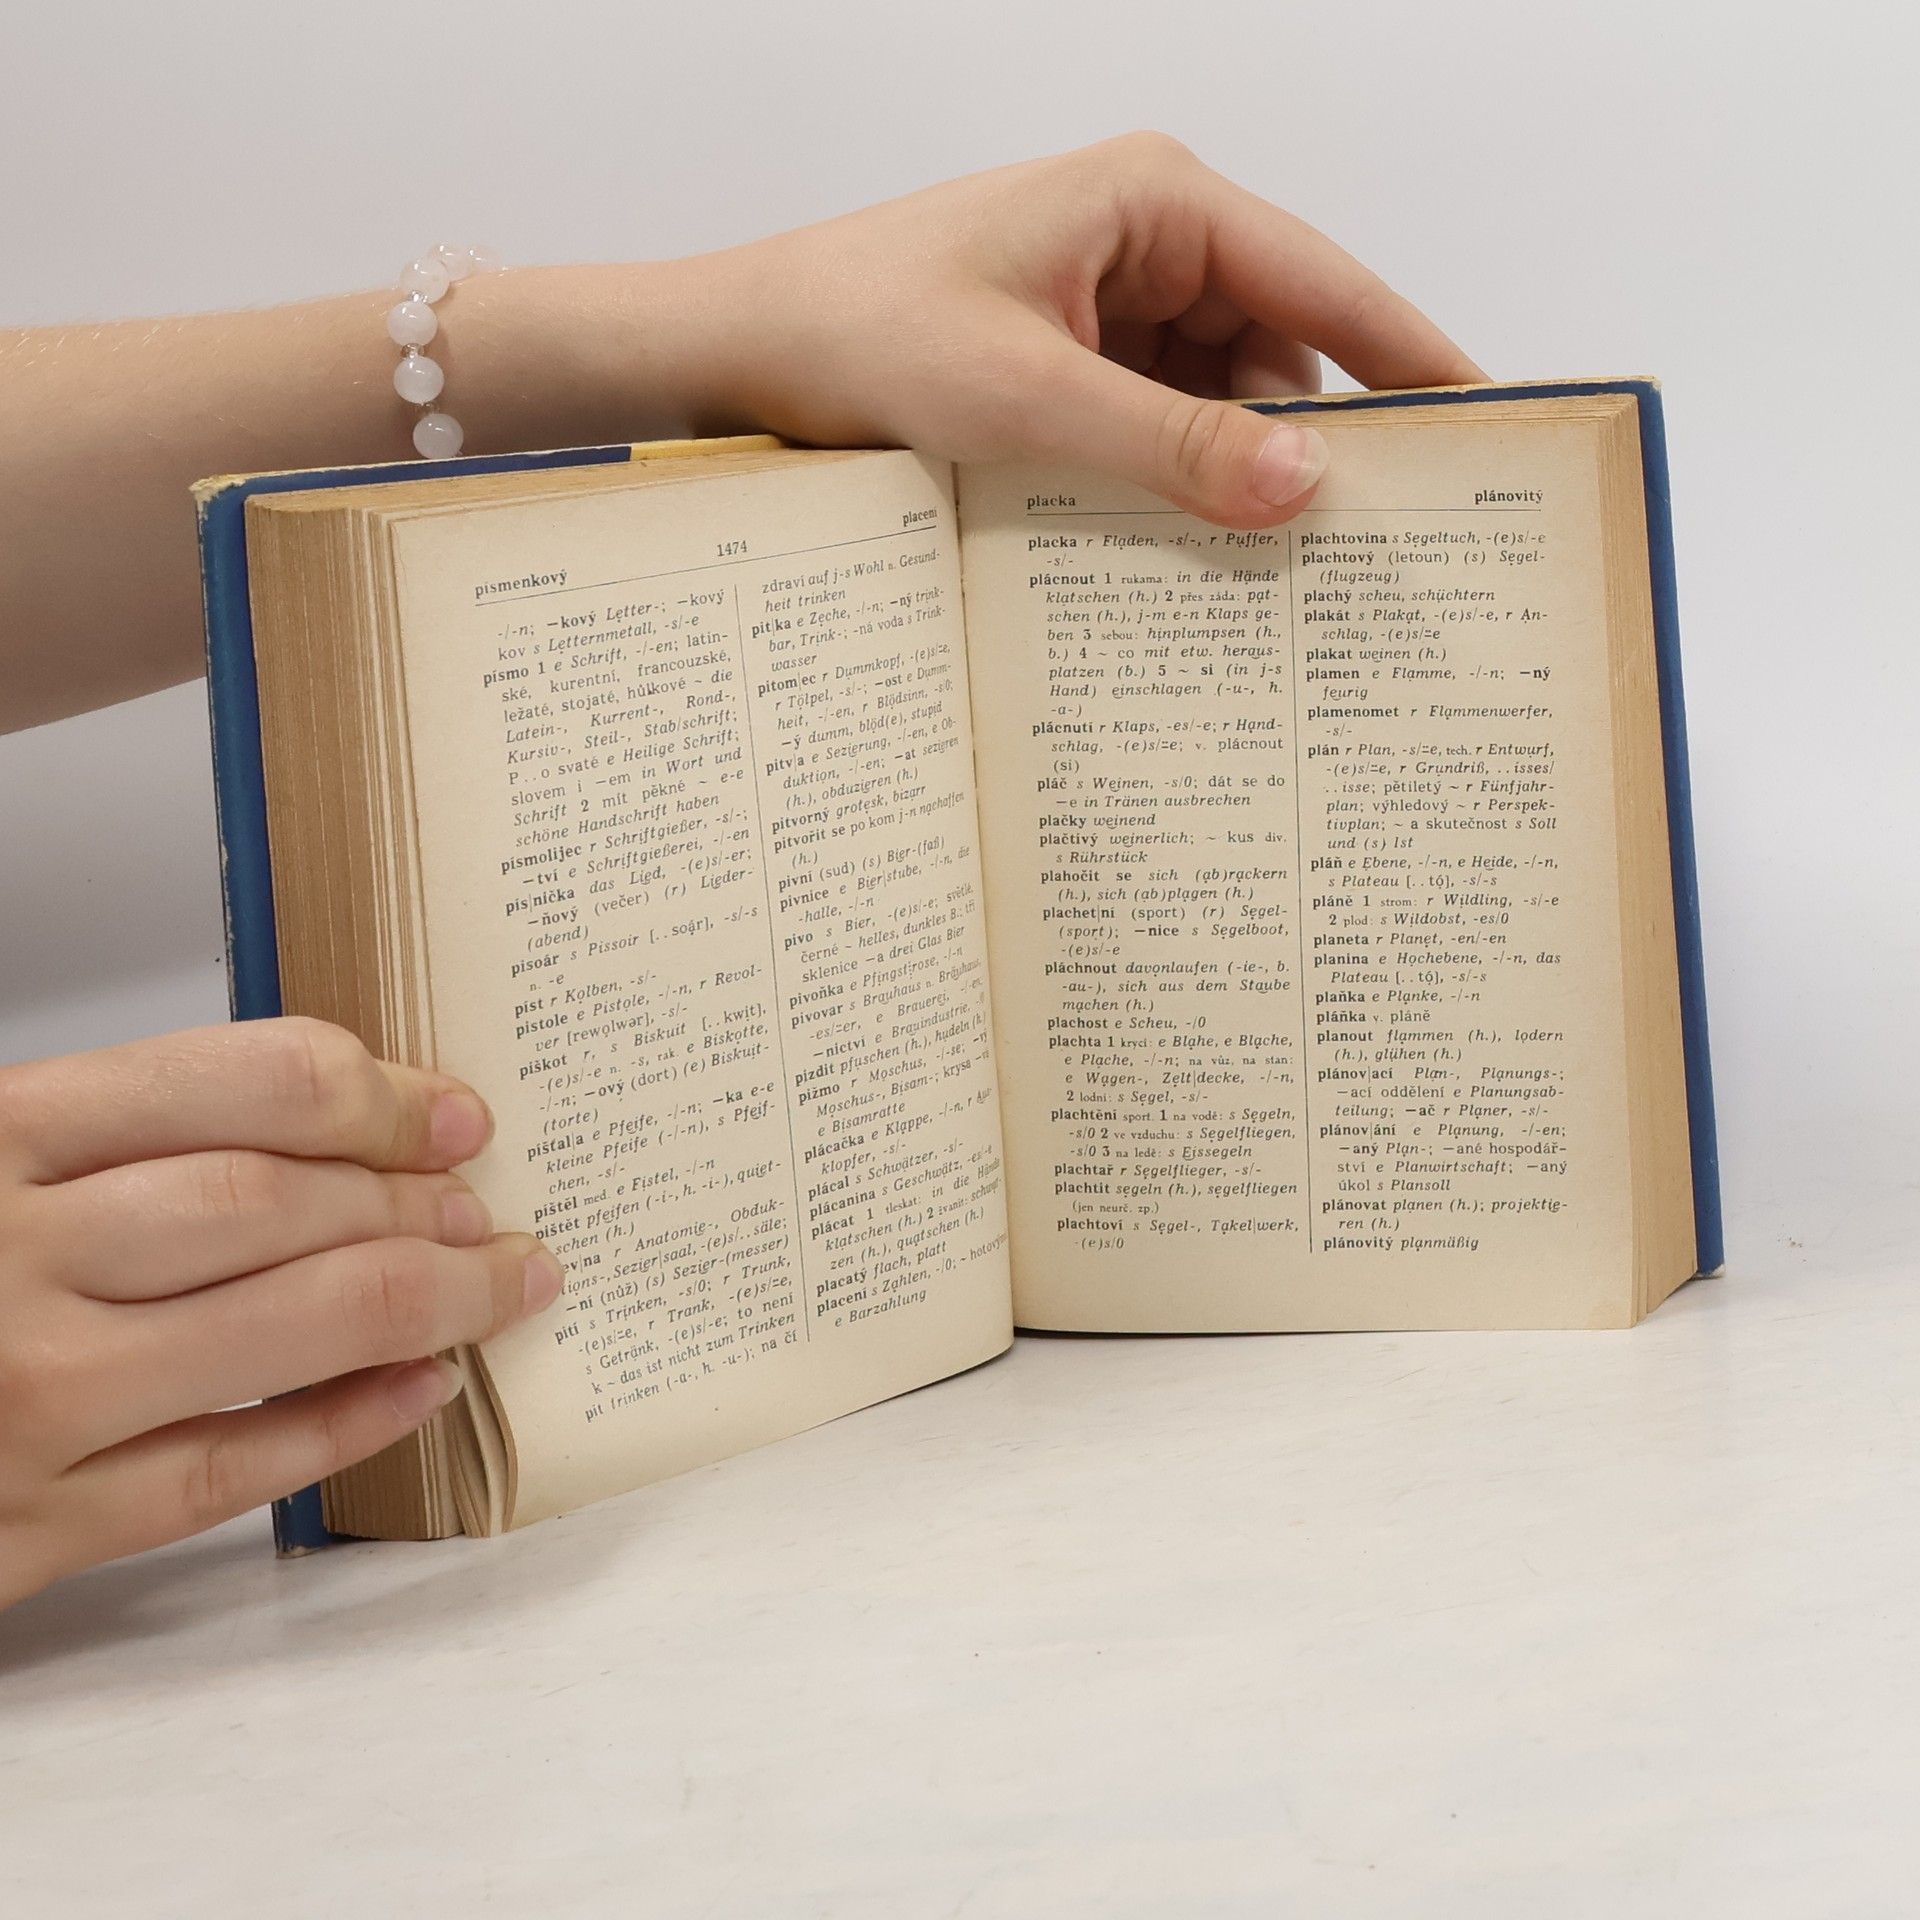 písmenkový 1474 placení
-/-n; —kový Letter-; —kový
kov s Letternmetall, -s/-e
písmo 1 e Schrift, -/-en; latin-
ské, kurentní, francouzské,
ležaté, stojaté, hůlkové ~ die
Latein-, Kurrent-, Rond-,
Kursiv-, Steil-, Stab/schrift;
P..o svaté e Heilige Schrift;
slovem i —em in Wort und
Schrift 2 mít pěkné ~ e-e
schöne Handschrift haben
písmolijec r Schriftgießer, -s/-;
—tví e Schriftgießerei, -/-en
pís|nička das Lied, -(e)s/-er;
—ňový (večer) (r) Lieder-
(abend)
pisoár s Pissoir [..soar], -s/-s
n. -e
píst r Kolben, -s/-
pistole e Pistole, -/-n, r Revol-
ver [rewolwər], -s/-
piškot r, s Biskuit [..kwit],
-(e)s/-e n. -s, rak. e Biskotte,
-/-n; —ový (dort) (e) Biskuit-
(torte)
píšťal|a e Pfeife, -/-n; —ka e-e
kleine Pfeife (-/-n), s Pfeif-
chen, -s/-
píštěl med. e Fistel, -/-n
pištět pfeifen (-i-, h. -i-), quiet-
schen (h.)
ev|na r Anatomie-, Obduk-
tions-, Sezier|saal, -(e)s/..säle;
—ní (nůž) (s) Sezier-(messer)
pití s Trinken, -s/0; r Trunk,
-(e)s/=e, r Trank, -(e)s/=e,
s Getränk, -(e)s/-e; to není
k ~ das ist nicht zum Trinken
pít trinken (-a-, h. -u-); na čí
zdraví auf j-s Wohl n. Gesund-
heit trinken
pit|ka e Zeche, -/-n; —ný trink-
bar, Trink-; —ná voda s Trink-
wasser
pitom|ec r Dummkopf, -(e)s/=e,
r Tölpel, -s/-; —ost e Dumm-
heit, -/-en, r Blödsinn, -s/0;
—ý dumm, blöd(e), stupid
pitv|a e Sezierung, -/-en, e Ob-
duktion, -/-en; —at sezieren
(h.), obduzieren (h.)
pitvorný grotesk, bizarr
pitvořit se po kom j-n nachäffen
(h.)
pivní (sud) (s) Bier-(faß)
pivnice e Bier|stube, -/-n, die
-halle, -/-n
pivo s Bier, -(e)s/-e; světlé,
černé ~ helles, dunkles B.; tři
sklenice —a drei Glas Bier
pivoňka e Pfingstrose, -/-n
pivovar s Brauhaus n. Bräuhaus,
-es/=er, e Brauerei, -/-en;
—nictví e Brauindustrie, -/0
pizdit pfuschen (h.), hudeln (h.)
pižmo r Moschus, -/-se; —vý
Moschus-, Bisam-; krysa —vá
e Bisamratte
plácačka e Klappe, -/-n, r Aus-
klopfer, -s/-
plácal s Schwätzer, -s/-
plácanina s Geschwätz, -es/-e
plácat 1 tleskat: in die Hände
klatschen (h.) 2 žvanit: schwat-
zen (h.), quatschen (h.)
placatý flach, platt
placení s Zahlen, -/0; ~ hotovými
e Barzahlung
placka plánovitý
placka r Fladen, -s/-, r Puffer,
-s/-
plácnout 1 rukama: in die Hände
klatschen (h.) 2 přes záda: pat-
schen (h.), j-m e-n Klaps ge-
ben 3 sebou: hinplumpsen (h.,
b.) 4 ~ co mit etw. heraus-
platzen (b.) 5 ~ si (in j-s
Hand) einschlagen (-u-, h.
-a-)
plácnutí r Klaps, -es/-e; r Hand-
schlag, -(e)s/=e; v. plácnout
(si)
pláč s Weinen, -s/0; dát se do
—e in Tränen ausbrechen
plačky weinend
plačtivý weinerlich; ~ kus div.
s Rührstück
plahočit se sich (ab)rackern
(h.), sich (ab)plagen (h.)
plachet|ní (sport) (r) Segel-
(sport); —nice s Segelboot,
-(e)s/-e
pláchnout davonlaufen (-ie-, b.
-au-), sich aus dem Staube
machen (h.)
plachost e Scheu, -/0
plachta 1 krycí: e Blahe, e Blache,
e Plache, -/-n; na vůz, na stan:
e Wagen-, Zelt|decke, -/-n,
2 lodní: s Segel, -s/-
plachtění sport. 1 na vodě: s Segeln,
-s/0 2 ve vzduchu: s Segelfliegen,
-s/0 3 na ledě: s Eissegeln
plachtař r Segelflieger, -s/-
plachtit segeln (h.), segelfliegen
(jen neurč. zp.)
plachtoví s Segel-, Takel|werk,
-(e)s/0
plachtovina s Segeltuch, -(e)s/-e
plachtový (letoun) (s) Segel-
(flugzeug)
plachý scheu, schüchtern
plakát s Plakat, -(e)s/-e, r An-
schlag, -(e)s/=e
plakat weinen (h.)
plamen e Flamme, -/-n; —ný
feurig
plamenomet r Flammenwerfer,
-s/-
plán r Plan, -s/=e, tech. r Entwurf,
-(e)s/=e, r Grundriß, ..isses/
..isse; pětiletý ~ r Fünfjahr-
plan; výhledový ~ r Perspek-
tivplan; ~ a skutečnost s Soll
und (s) Ist
pláň e Ebene, -/-n, e Heide, -/-n,
s Plateau [..tó], -s/-s
pláně 1 strom: r Wildling, -s/-e
2 plod: s Wildobst, -es/0
planeta r Planet, -en/-en
planina e Hochebene, -/-n, das
Plateau [..tó], -s/-s
plaňka e Planke, -/-n
pláňka v. pláně
planout flammen (h.), lodern
(h.), glühen (h.)
plánov|ací Plan-, Planungs-;
—ací oddělení e Planungsab-
teilung; —ač r Planer, -s/-
plánov|ání e Planung, -/-en;
—aný Plan-; —ané hospodář-
ství e Planwirtschaft; —aný
úkol s Plansoll
plánovat planen (h.); projektie-
ren (h.)
plánovitý planmäßig